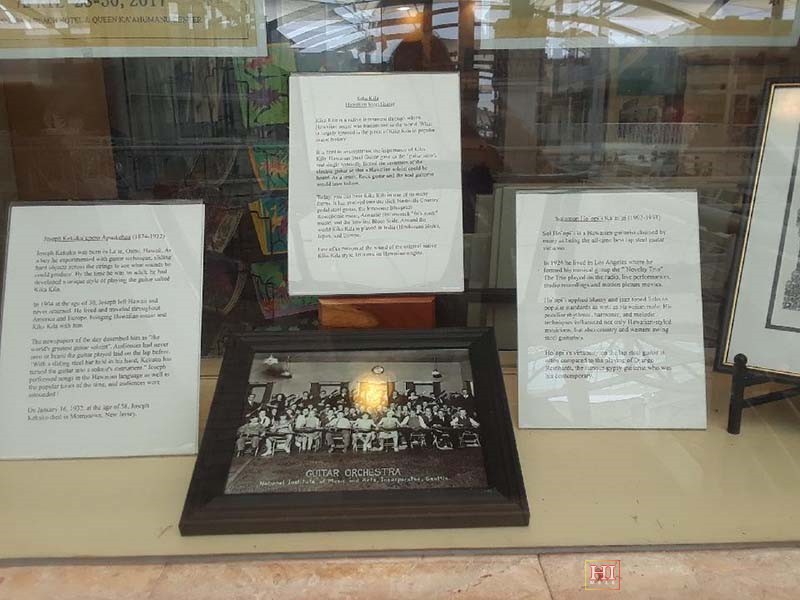 28-30, 2017
BEACH HOTEL & QUEEN KA'AHUMANU CENTER
Kika Kila
Hawaiian Steel Guitar
Kika Kila is a native instrument through where
Hawaiian music was transmitted to the world. What
is largely ignored is the place of Kika Kila in popular
music history.
Kika Hawaiian Steel Guitar gave us the
electric guitar so that a Hawaiian soloist could be
heard. As a result, Rock guitar and the lead guitarist
would soon follow.
Today, you can hear Kika Kila in one of its many
forms. It has evolved into the slick Nashville Country
pedal steel guitar, the lonesome bluegrass
world Kika Kila is played in India (Hindustani Slide),
Japan, and
of the original native
Kika Kila style, its tone, its Hawaiian origin.
Joseph Kekuku'upenu Apuakehau (1874-1932)
Joseph Kekuku was born in La'ie, Oahu, Hawaii. As
a boy he experimented with guitar technique, sliding
hard objects across the strings to see what sounds he
could produce. By the time he was an adult, he had
developed a unique style of playing the guitar called
Kika Kila.
In 1904 at the age of 30, Joseph left Hawaii and
never returned. He lived and traveled throughout
America and Europe, bringing Hawaiian music and
Kika Kila with him.
The newspapers of the day described him as "the
world's greatest guitar soloist". Audiences had never
seen or heard the guitar played on the lap before.
"With a sliding steel bar held in his hand, Kekuku has
turned the guitar into a soloist's instrument." Joseph
performed songs in the Hawaiian language as well as
the popular tunes of the time, and audiences were
astounded!
On January 16, 1932, at the age of 58, Joseph
Kekuku died in Morristown, New Jersey.
Solomon Ho'opi'i Ka'ai'ai (1902-1953)
Sol Ho'opi'i is a Hawaiian guitarist claimed by
many as being the all-time best lap steel guitar
virtuoso.
In 1924 he lived in Los Angeles where he
formed his musical group the "Novelty Trio"
The Trio played on the radio, live performances,
studio recordings and motion picture movies.
Ho'opi'i applied bluesy and jazz toned licks to
popular standards as well as Hawaiian music. His
peculiar rhythmic, harmonic, and melodic
techniques influenced not only Hawaiian-styled
musicians, but also country and western swing
steel guitarists.
Ho'opi'i's virtuosity on the lap steel guitar is
often compared to the playing of Django
Reinhardt, the famous gypsy guitarist who was
his contemporary.
GUITAR ORCHESTRA
National Institute of Music and Arts, Incorporated, Seattle.
HI